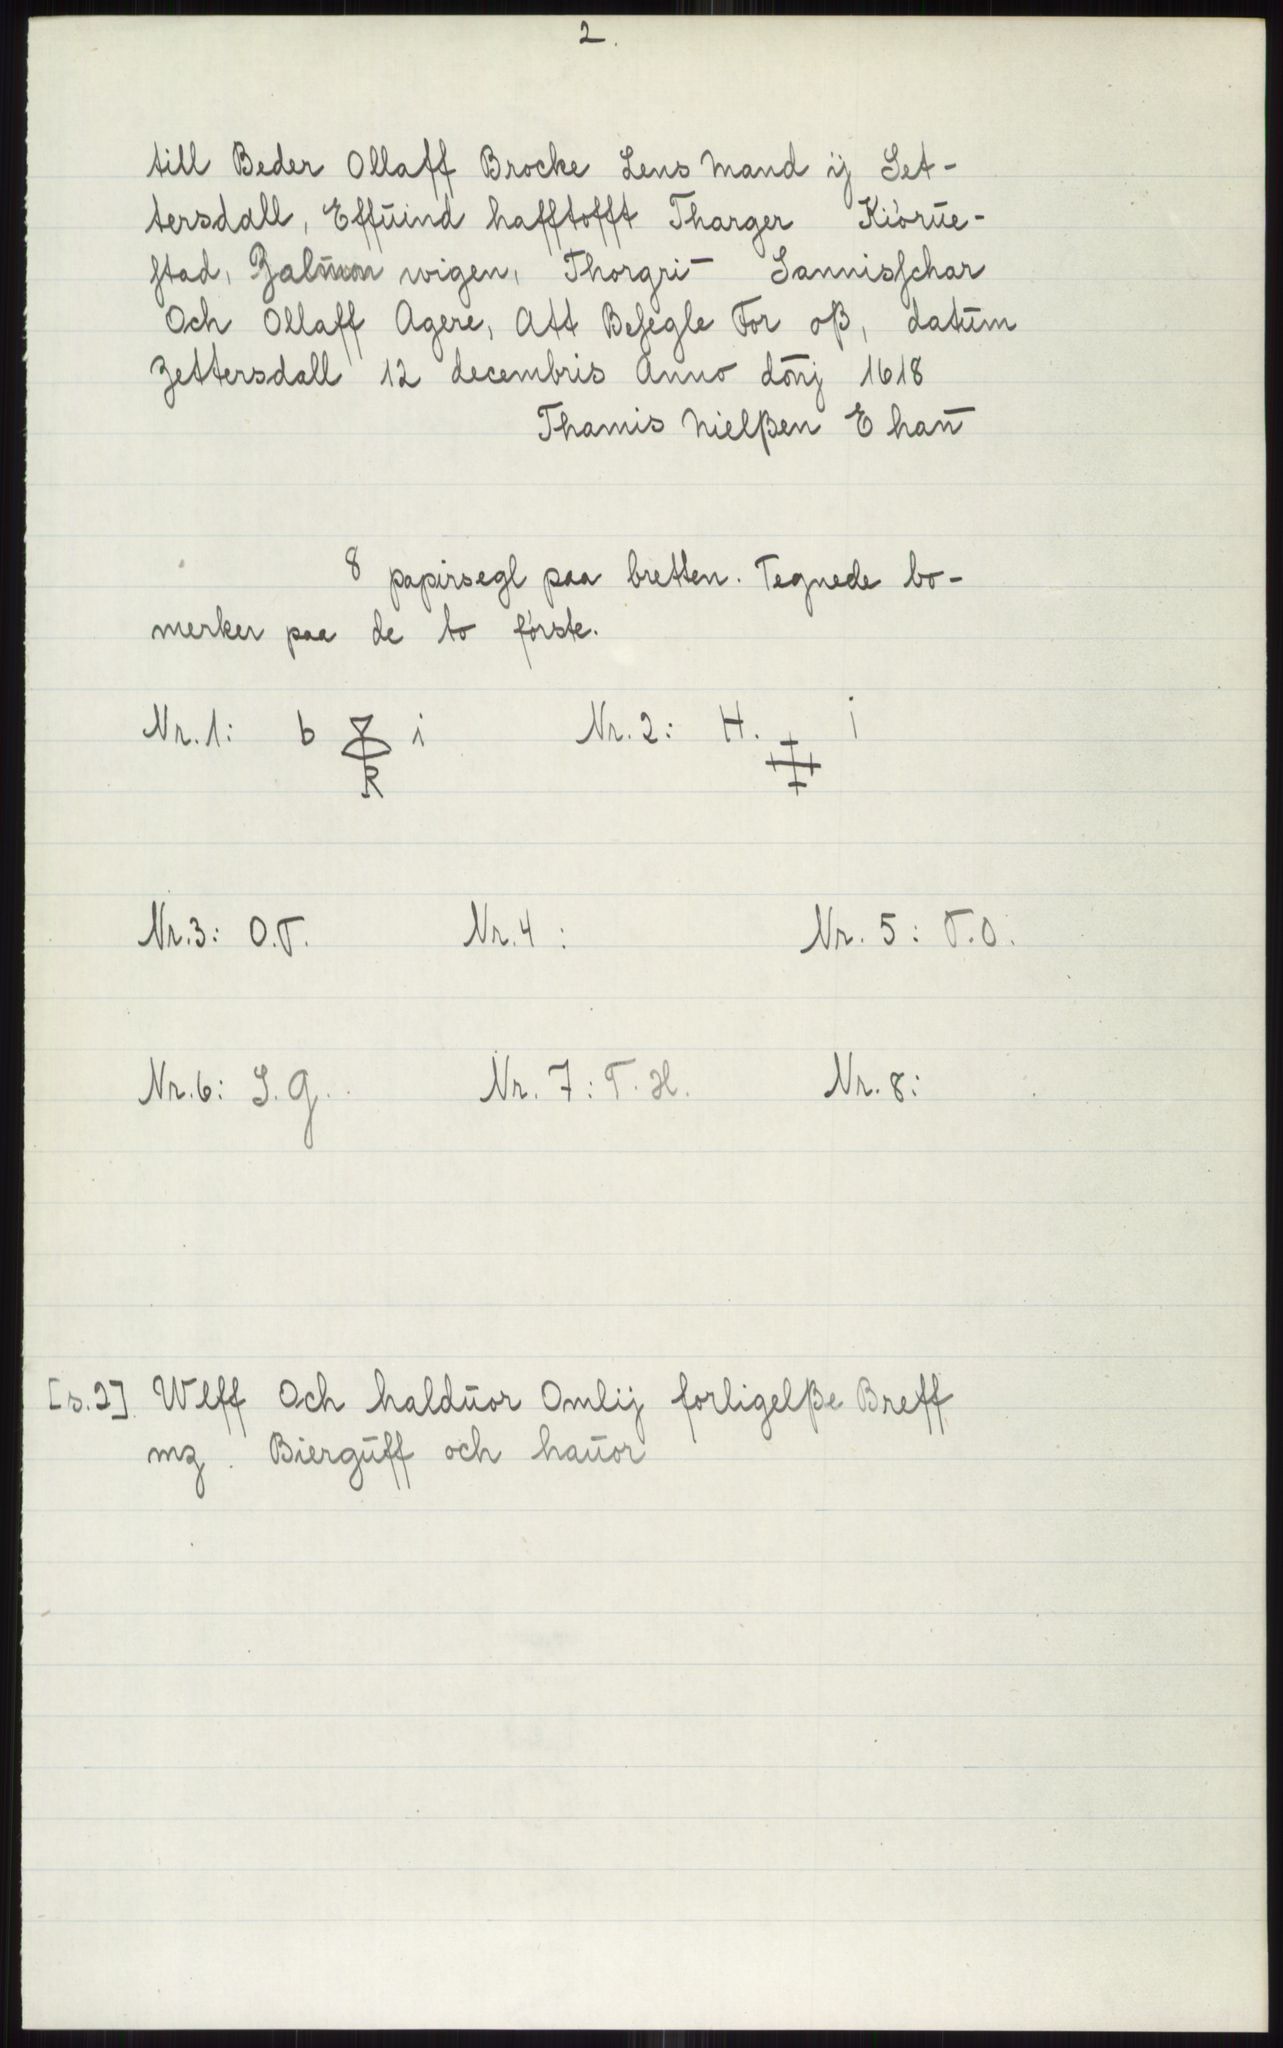 2.
till Beder Ollaff Brocke Lens Mand ij Set-
tersdall, Effuind hafftofft Tharger Kiörue-
stad, Zalmon wigen, Thorgri̅ Sannisschar
Och Ollaff Agere, Att Besegle For oß, datum
Zettersdall 12 decembris Anno dōnj 1618
Thamis Nielßen E han̅
8 papirsegl paa bretten. Tegnede bo-
merker paa de to første.
Nr. 1: b R i Nr. 2: H. i
Nr. 3: O.T. Nr. 4: Nr. 5: T.O.
Nr. 6: S.G. Nr. 7: T.H. Nr. 8:
[s.2] Wlff Och halduor Omlij forligelße Breff
mz. Bierguff och hauor